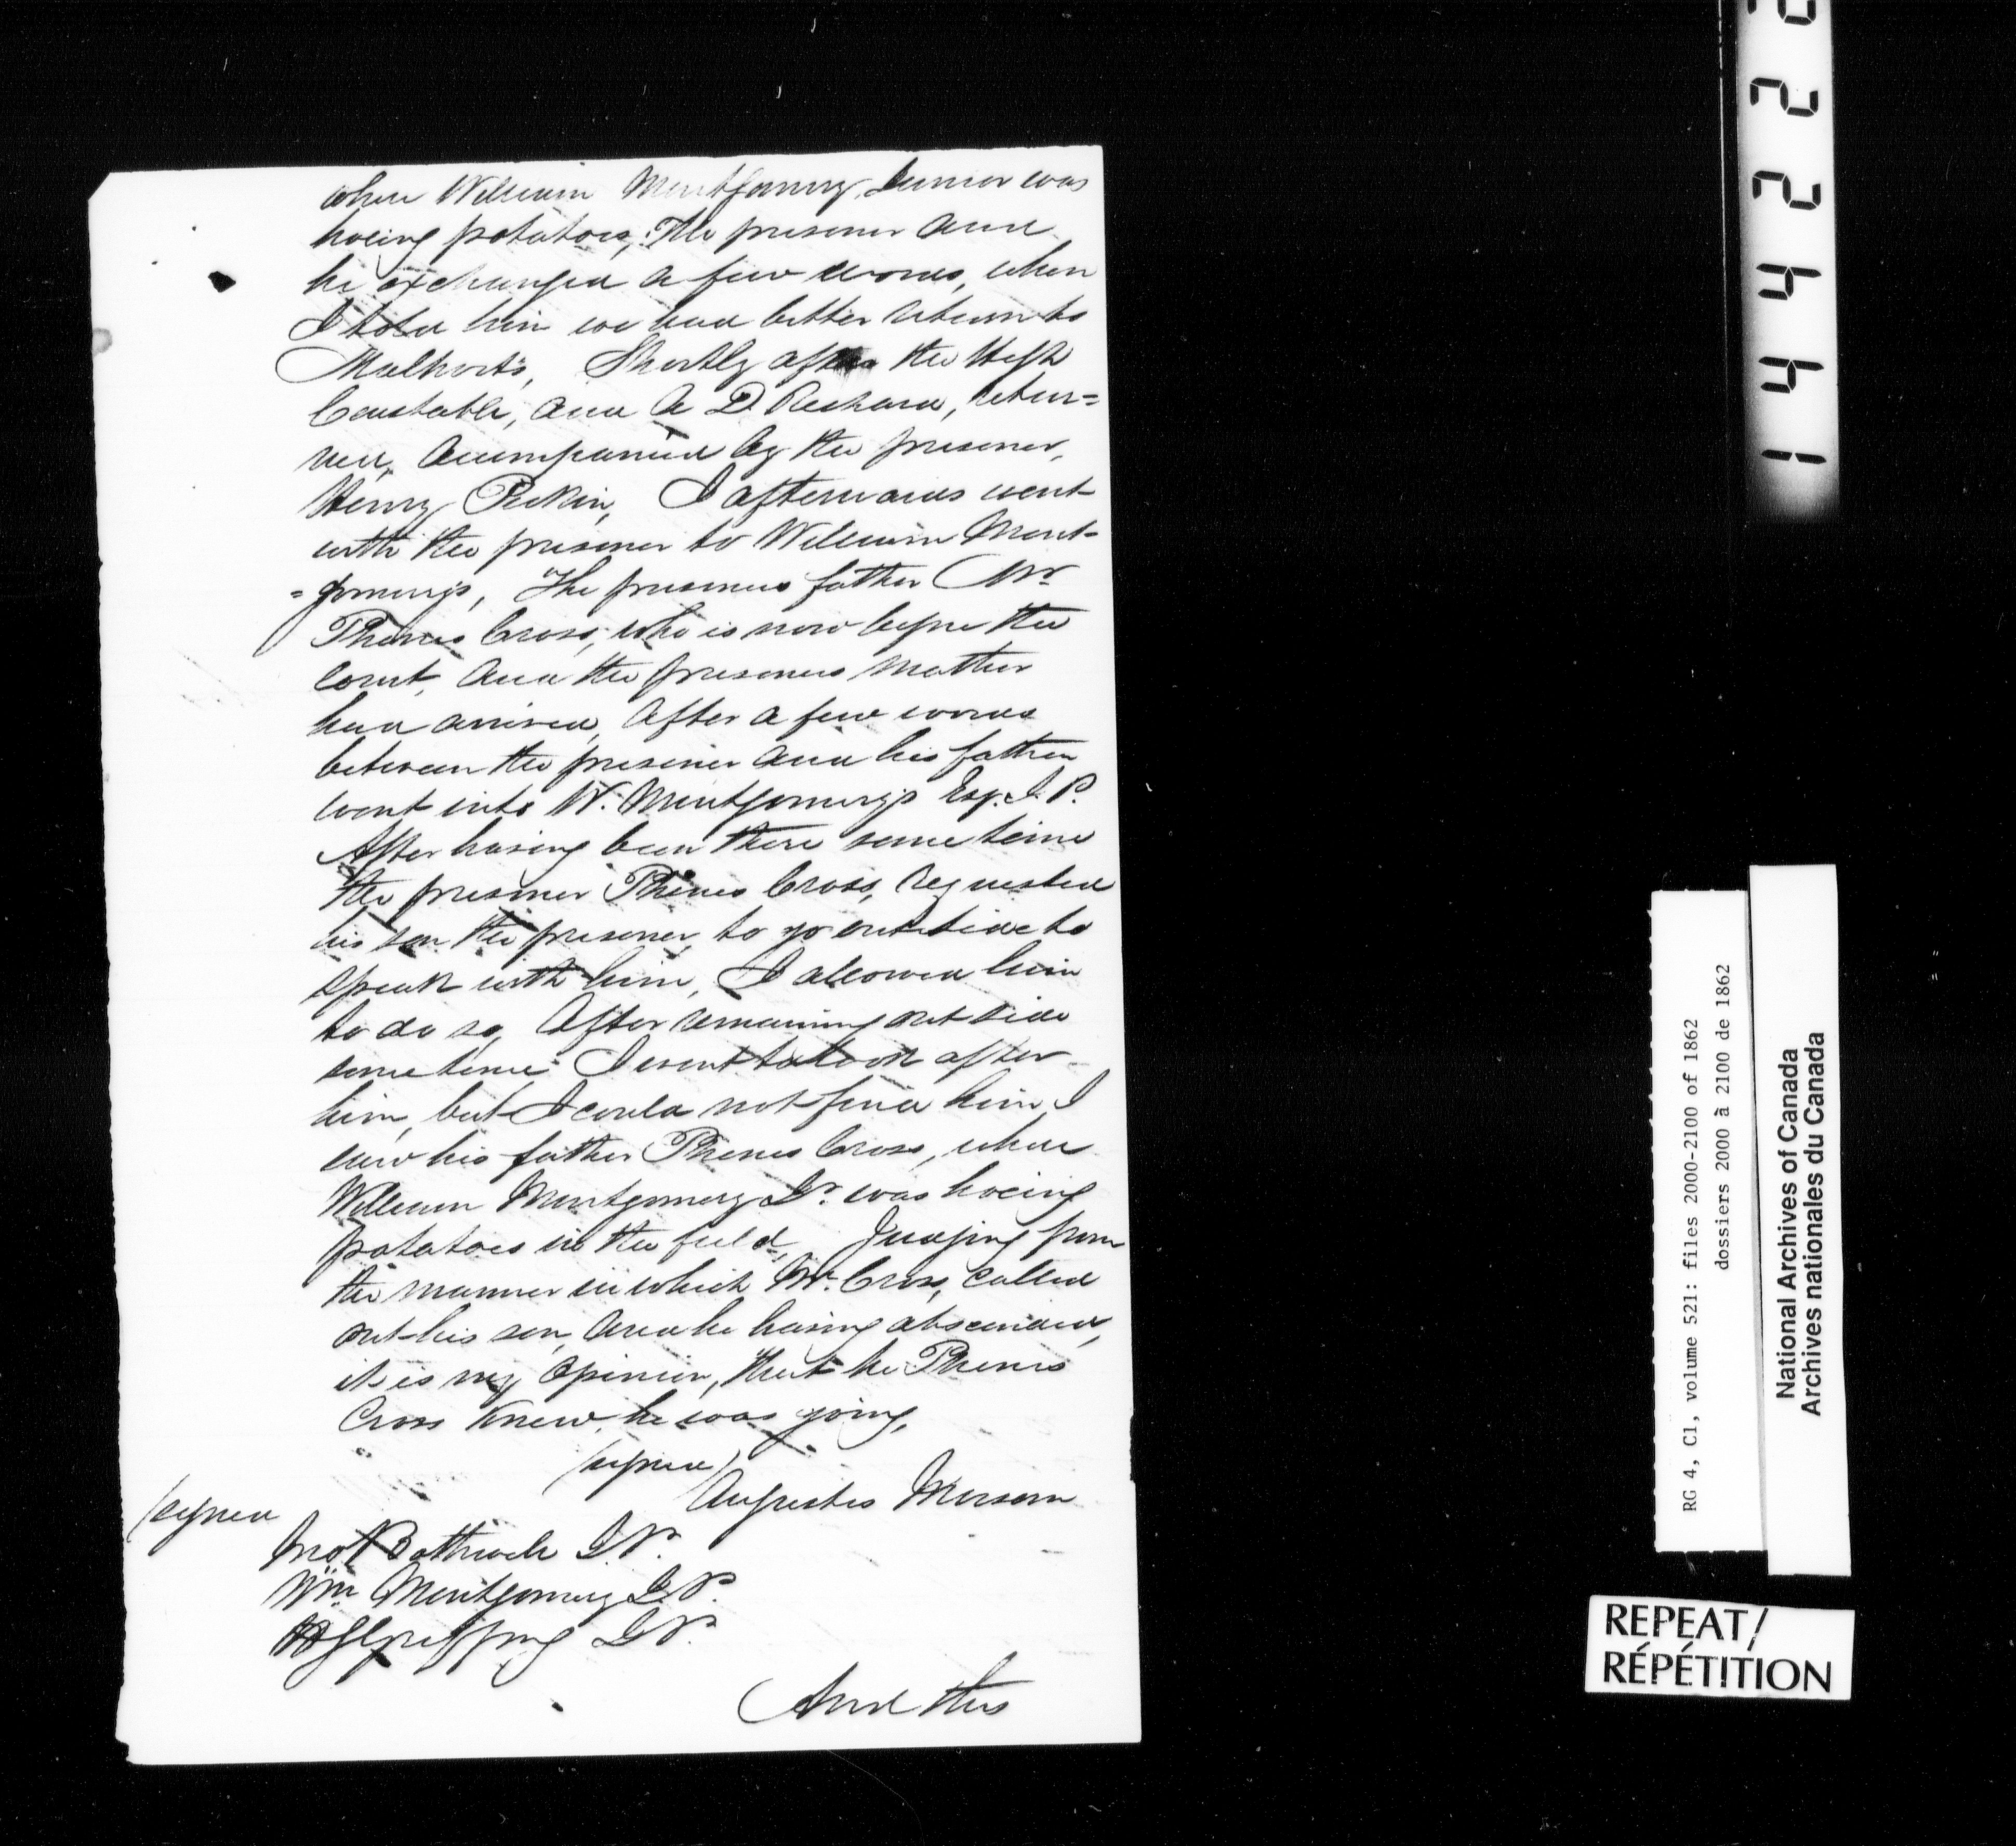 where William Montgomery, Junior was
hoeing potatoes, The prisoner and
he exchanged a few words, when
I told him we had better return to
Malhoit's, Shortly after the High
Constable, and A D. Richard, retur=
ned, accompanied by the prisoner,
Henry I afterwards went
with the prisoner to William Mont-
=gomery's, The prisoners father Mr
Phenes Cross, who is now before the
court, and the prisoners mother
had arrived, After a few words
between the prisoner and his father
went into W. Montgomery's Esq. J. P.
After having been there some time
the prisoner Phenes Cross, requested
his son the prisoner, to go outside to
speak with him, I allowed him
to do so, After remaining out side
some time I went to look after
him, but I could not find him, I
saw his father Phenes Cross, where
William Montgomery Jr. was hoeing
potatoes in the field, Judging from
the manner in which Mr. Cross, called
out his son, and he having absconded,
it is my opinion, that he Phenes
Cross knew, he was going,
(signed)
Augustus
(signed
J.P.
Wm Montgomery J.P.
J.P.
And this
1 4 4 2 2
RG 4, C1, volume 521: files 2000-2100 of 1862
dossiers 2000 à 2100 de 1862
National Archives of Canada
Archives nationales du Canada
REPEAT/
RÉPÉTITION